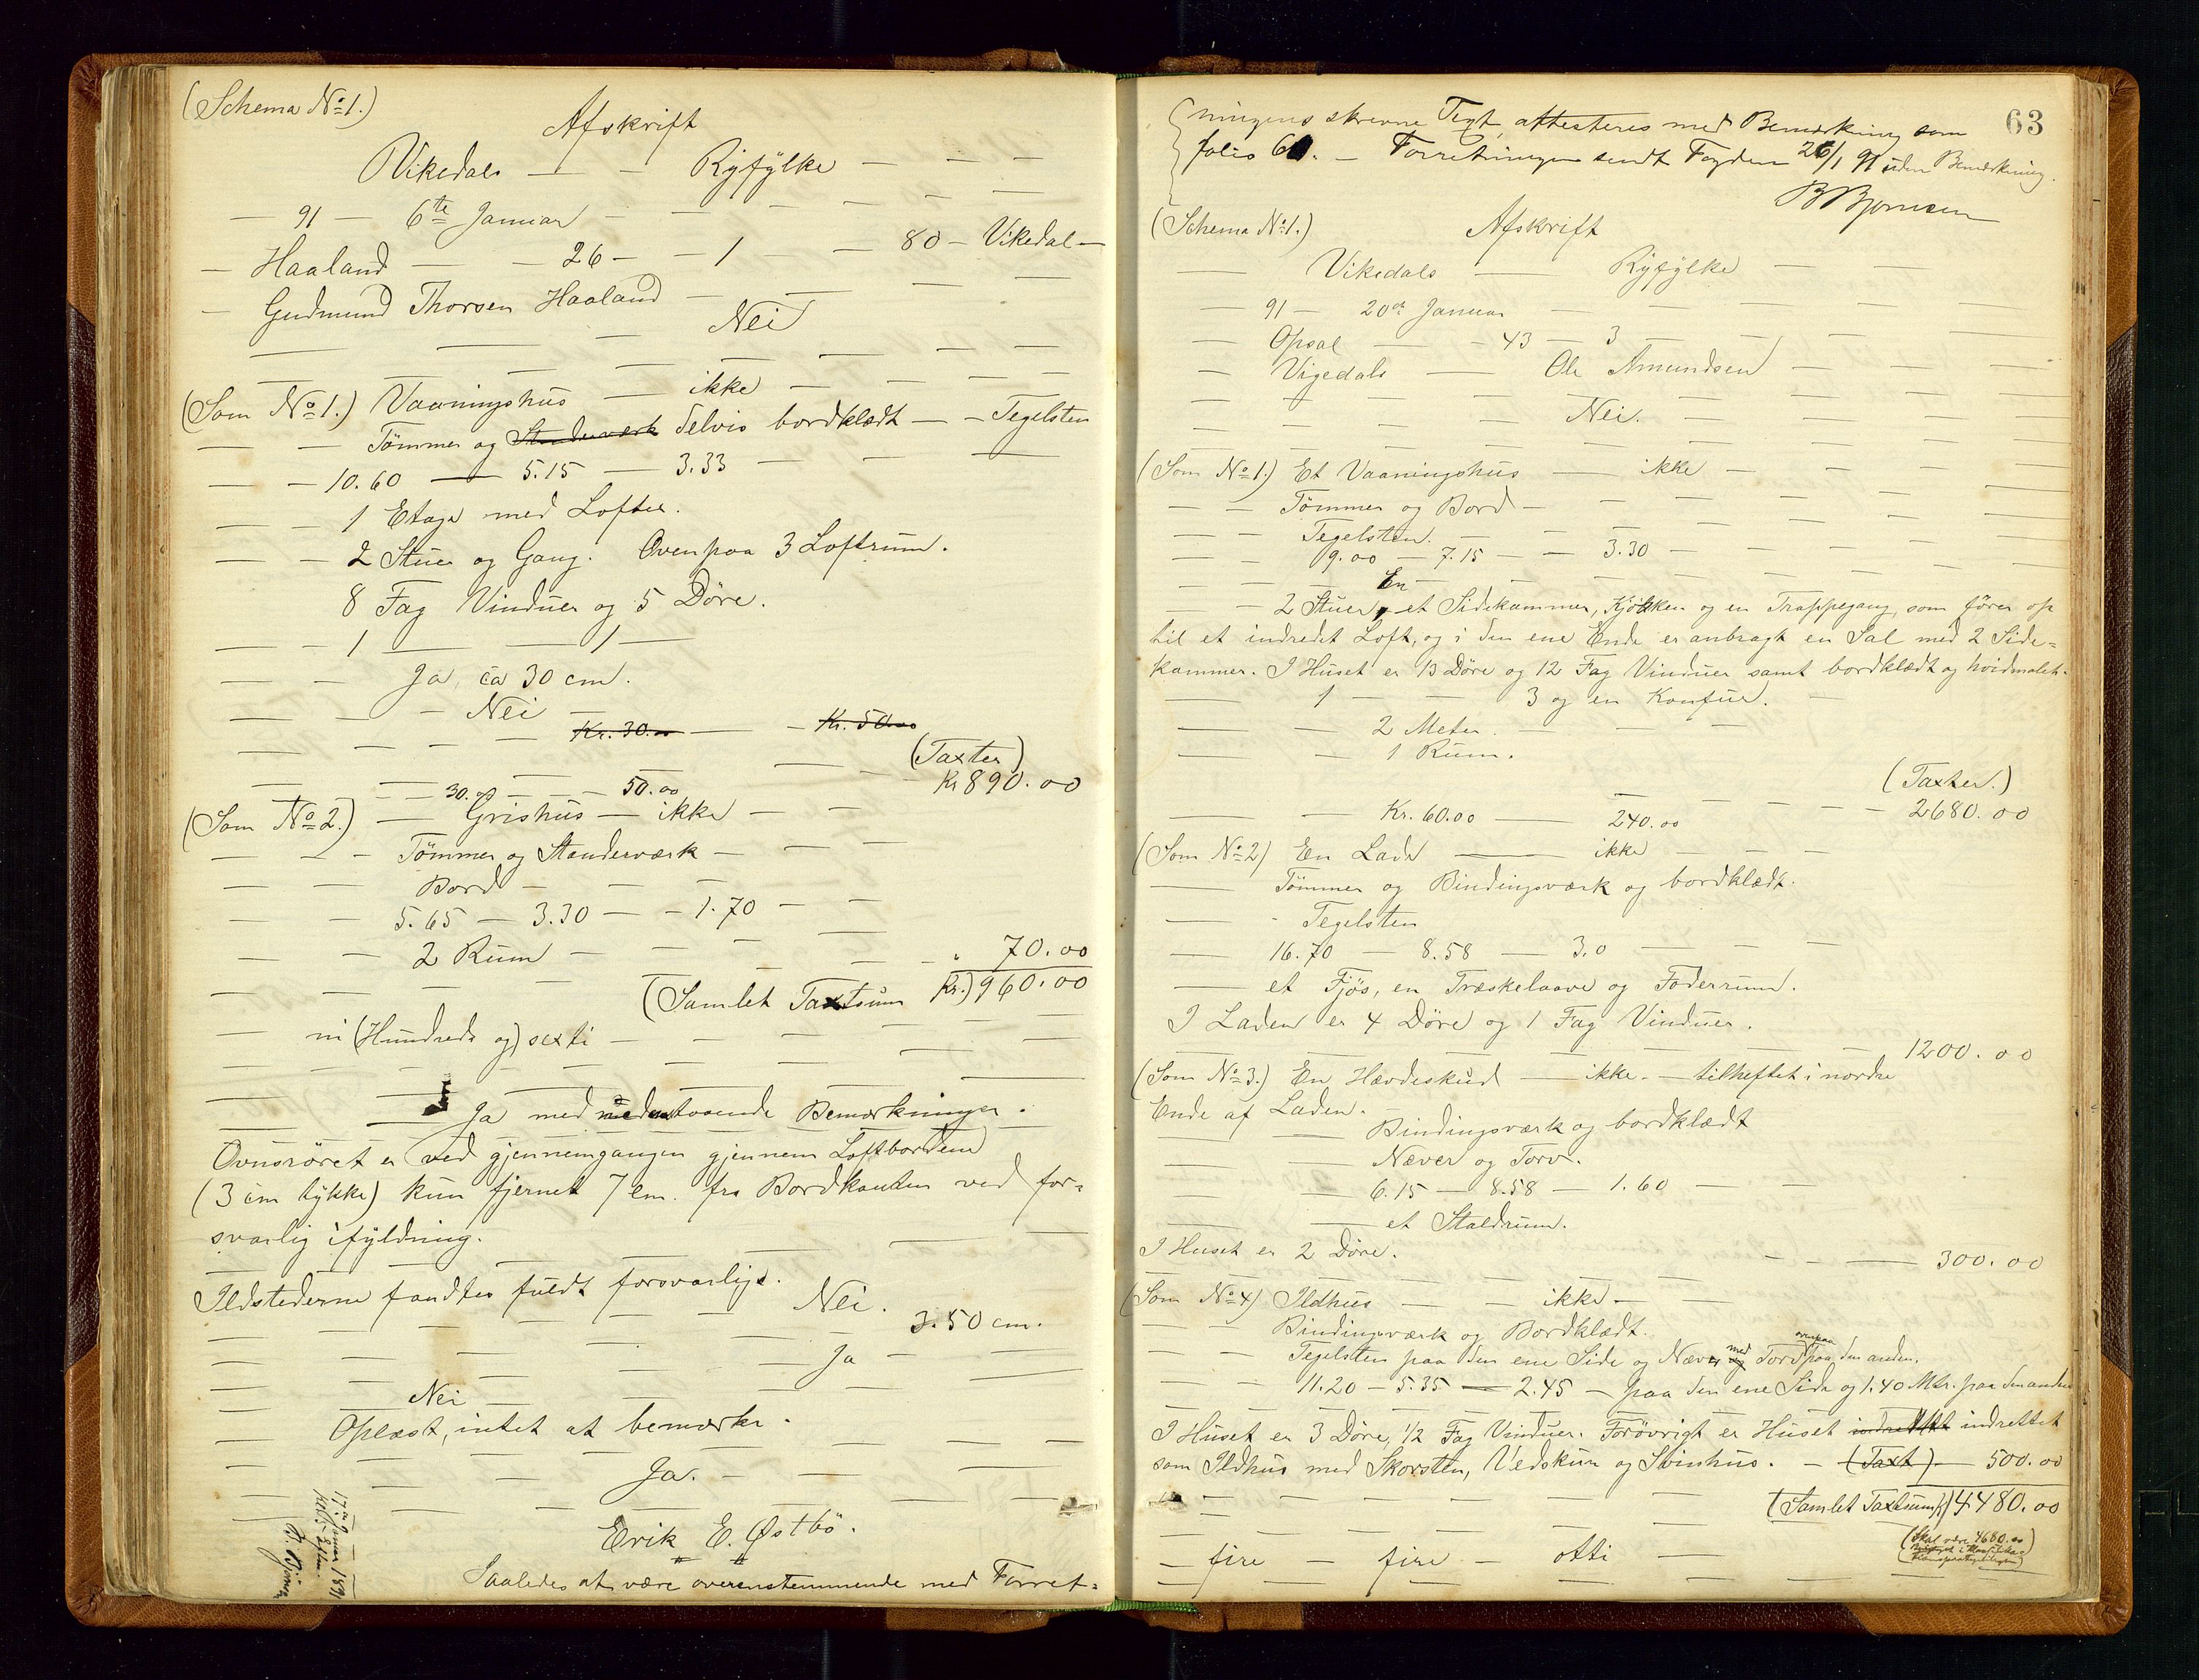 (Schema No 1.)
Afskrift
Vikedals — — Ryfylke — — —
— 91 — 6te Januar — — — —
— Haaland — — 26 — — 1 — — 80 — Vikedal —
— Gudmund Thorsen Haaland — — — —
Nei
(Som No 1.) Vaaningshus — ikke — — —
— — Tömmer og Standerværk delvis bordklædt — — Tegelsten
— — 10.60 — 5.15 — 3.33 — — —
— — 1 Etage med Lofter.
— — 2 Stuer og Gang. Ovenpaa 3 Loftrum.
8 Fag Vinduer og 5 Døre.
— — 1 — — 1 —
— — Ja, ca 30 cm.
— — — Nei —
— — — — Kr. 30.00 — — Kr. 50.00
(Taxter)
— — 30.00 — — 50.00 — — — Kr 890.00
(Som No 2.) — Grishus — ikke — —
— — — Tömmer og Standerværk — — —
— — Bord — — —
— — 5.65 — 3.30 — — 1.70 — —
— — 2 Rum — — — — — " 70.00
(Samlet Taxtsum Kr.) 960.00
— ni (Hundrede og) sexti — — — —
Ja med nedenstaaende Bemærkninger.
Ovnsröret er ved gjennemgangen gjennem Loftbordene
(3 cm tykke) kun fjernet 7 cm. fra Bordkanten ved for-
svarlig ifyldning.
Ildstederne fandtes fuldt forsvarlige.
— — — — Nei.
3.50 cm.
— — — — Ja —
— Nei
— Oplæst, intet at bemærke.
— — Ja. — —
Erik E. Østbö.
17de Januar 1891
B. Bjørnsen
Saaledes at være overensstemmende med Forret-
63
ningens skrevne Text, attesteres med Bemærkning som
folio 60. — Forretningen sendt Fogden 26/1 91 uden Bemærkning.
B Bjørnsen
(Schema No 1.)
Afskrift
— Vikedals — Ryfylke — —
— 91 — 20de Januar —
— Opsal — — 43 — 3 — —
— Vigedals — Ole Amundsen — —
Nei.
(Som No 1.) Et Vaaningshus — ikke — —
— — Tömmer og Bord — — — —
— — Tegelsten. — —
— — 9.00 — 7.15 — — 3.30 — — —
En
— — 2 Stuer, et Sidekammer, Kjökken og en Trappegang, som förer op
til et indredet Loft, og i den ene Ende er anbragt en Sal med 2 Side-
kammer. I Huset er 13 Døre og 12 Fag Vinduer samt bordklædt og hvidmalet.
— 1 — — 3 og en Komfur. —
— — 2 Meter. — — —
— — 1 Rum.
(Taxter.)
— — Kr. 60.00 — 240.00 — — — 2680.00
(Som No 2) En Lade — ikke — — —
Tömmer og Bindingsværk og bordklædt.
— - Tegelsten
— 16.70 — 8.58 — 3.0 — — —
— et Fjös, en Træskelaave og Foderrum.
I Laden er 4 Döre og 1 Fag Vinduer.
— — — — — 1200.00
(Som No 3.) En Hævdeskud — ikke. — tilheftet i nordre
Ende af Laden.
— — Bindingsværk og bordklædt
— — Næver og Torv.
— — 6.15 — 8.58 — 1.60 — —
— — et Staldrum.
I Huset er 2 Döre. — — — 300.00
(Som No 4) Ildhus — — ikke —
— — Bindingsværk og Bordklædt.
ovenpaa
med
— — Tegelsten paa den ene Side og Næver og Torv paa den anden.
— — 11.20 — 5.35 — 2.45 — paa den ene Side og 1.40 Mtr. paa den anden
I Huset er 3 Döre, 1/2 Fag Vinduer. Forövrigt er Huset indrettet indrettet
som Ildhus med Skorsten, Vedskur og Svinhus. — (Taxt) — 500.00
(Samlet Taxtsum K) 4480.00
(Skal være 4680.00
— fire — fire — otti —